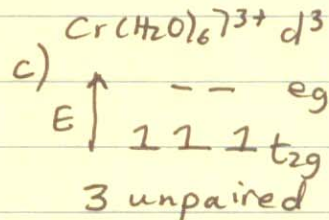 Cr(H2O)6]3+ d3
c)
eg
E ↑ 1 1 1 t2g
3 unpaired